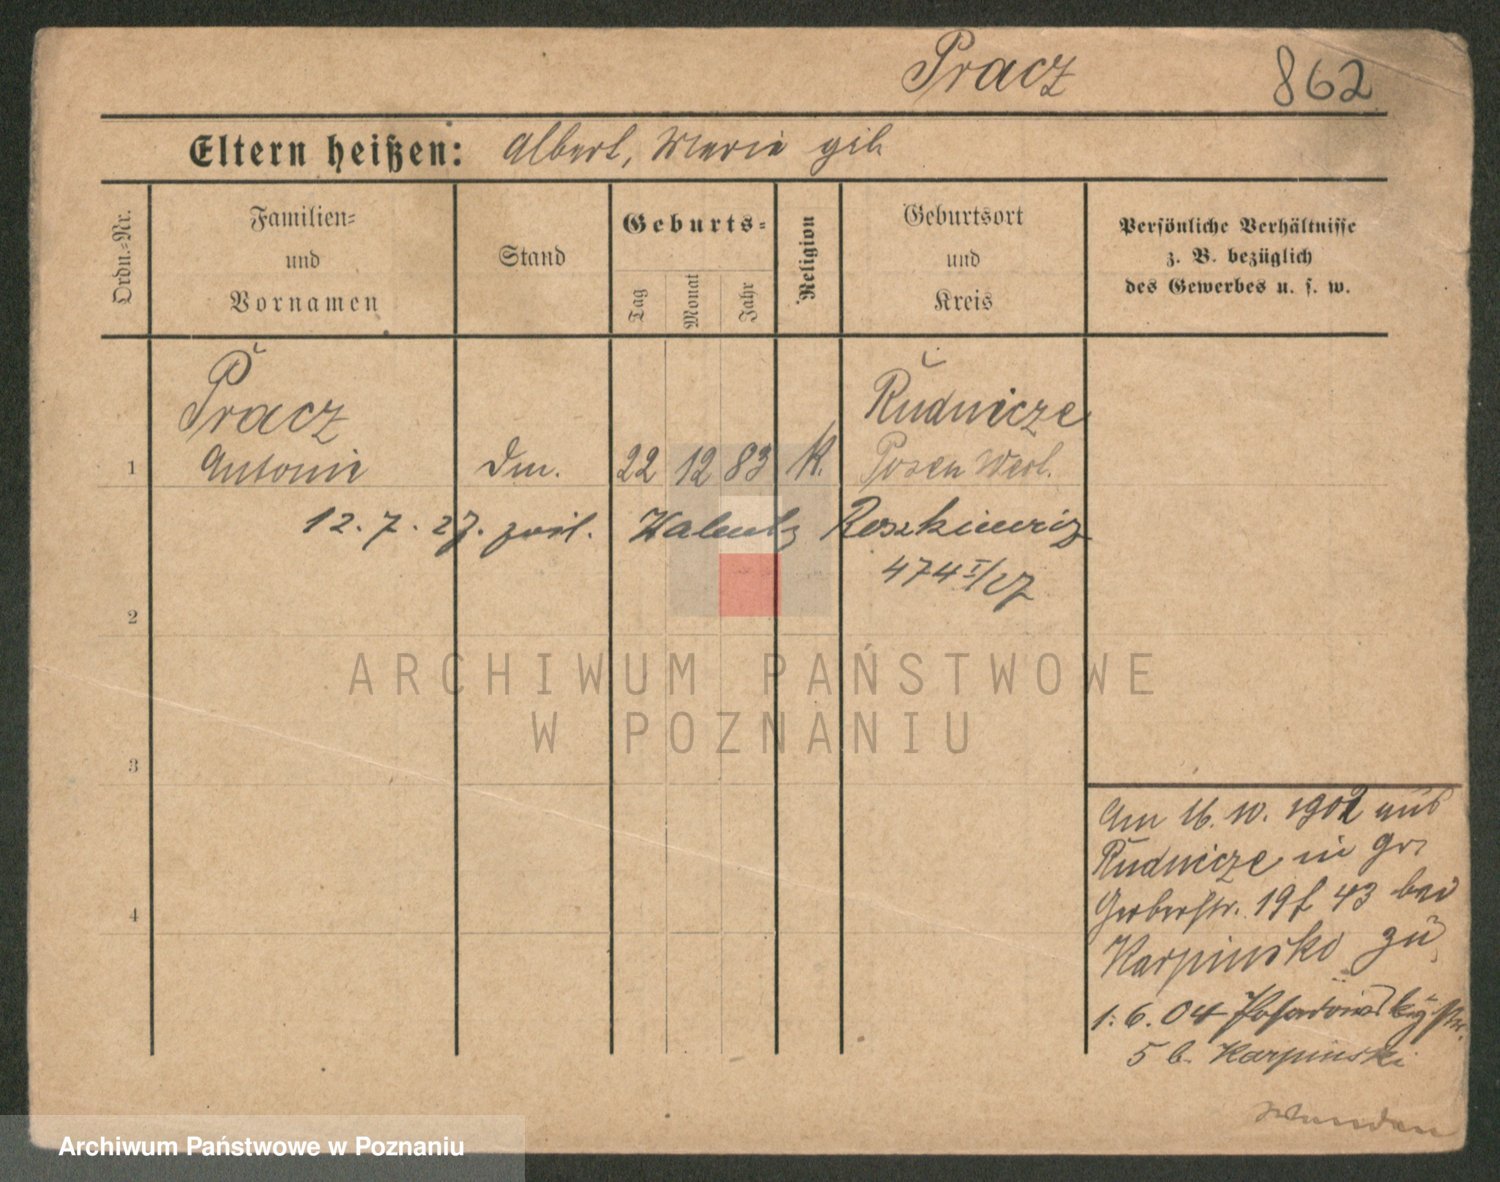 Pracz 862
Eltern heißen: Albert, Marie geb.
Ordn.-Nr.
Familien-
und
Vornamen
Stand
Geburts-
Tag
Monat
Jahr
Religion
Geburtsort
und
Kreis
Persönliche Verhältnisse
z. B. bezüglich
des Gewerbes u. s. w.
Pracz Rudnicze
1 Antonie Dm. 22 12 83 K. Posen West.
12. 7. 27. Roszkiewicz
474 I/27
2
3
4
Am 16. 10. 1902 aus
Rudnicze in Gr.
Gerberstr. 19 43 bei
Karpinski zu
1. 6. 04
5 b. Karpinski
Wenden
ARCHIWUM PAŃSTWOWE
W POZNANIU
Archiwum Państwowe w Poznaniu